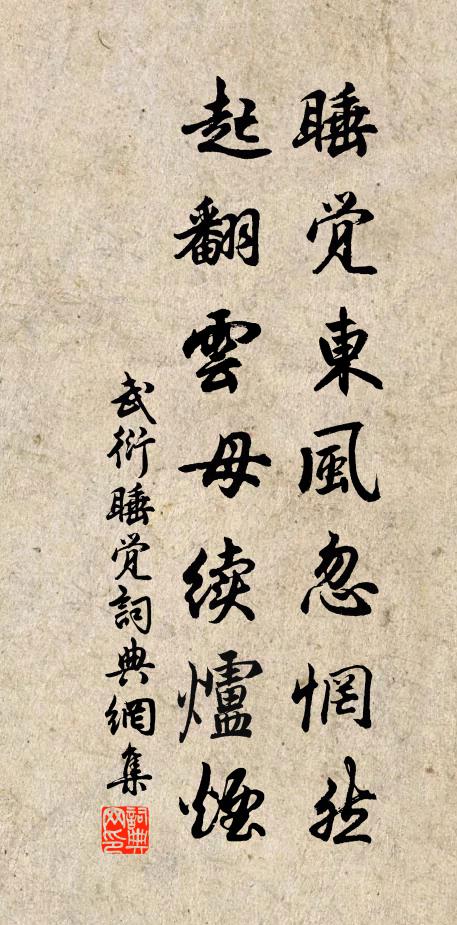 睡觉東風忽惘然
起翻雲母续爐煙
武衍睡觉詞典網集
詞典网印